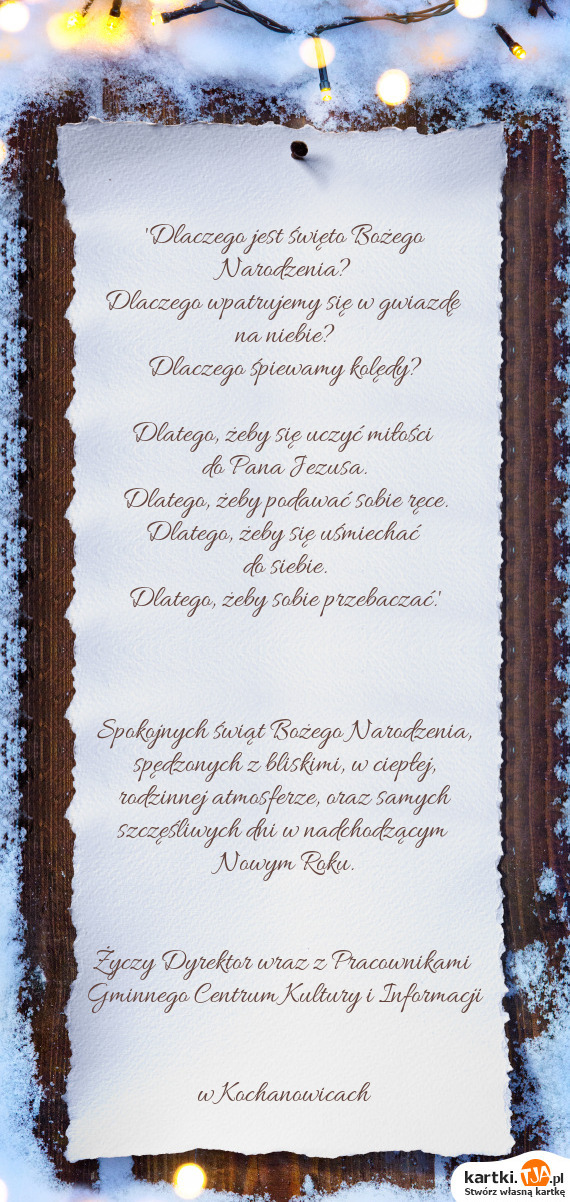 'Dlaczego jest święto Bożego
Narodzenia?
Dlaczego wpatrujemy się w gwiazdę
na niebie?
Dlaczego śpiewamy kolędy?
Dlatego, żeby się uczyć miłości
do Pana Jezusa.
Dlatego, żeby podawać sobie ręce.
Dlatego, żeby się uśmiechać
do siebie.
Dlatego, żeby sobie przebaczać.'
Spokojnych świąt Bożego Narodzenia,
spędzonych z bliskimi, w ciepłej,
rodzinnej atmosferze, oraz samych
szczęśliwych dni w nadchodzącym
Nowym Roku.
Życzy Dyrektor wraz z Pracownikami
Gminnego Centrum Kultury i Informacji
w Kochanowicach
kartki.TJA.pl
Stwórz własną kartkę